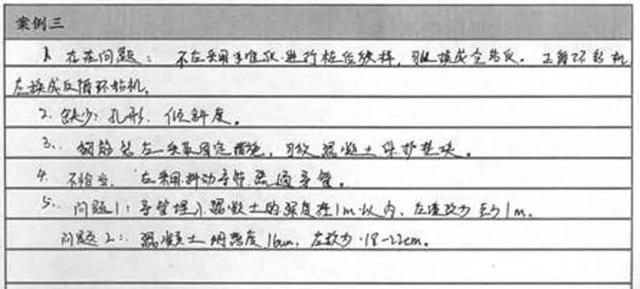 案例三
1. 存在问题：不应采用水准仪进行桩位放样，可以换成全站仪。正循环钻机
应换成反循环钻机。
2. 缺少：孔形、倾斜度。
3. 钢筋笼应采取固定措施，可放混凝土保护垫块。
4. 不恰当，应采用抖动导管疏通导管。
5. 问题1：导管埋入混凝土的深度在1m以内，应改为至少1m。
问题2：混凝土坍落度16cm，应改为18-22cm。